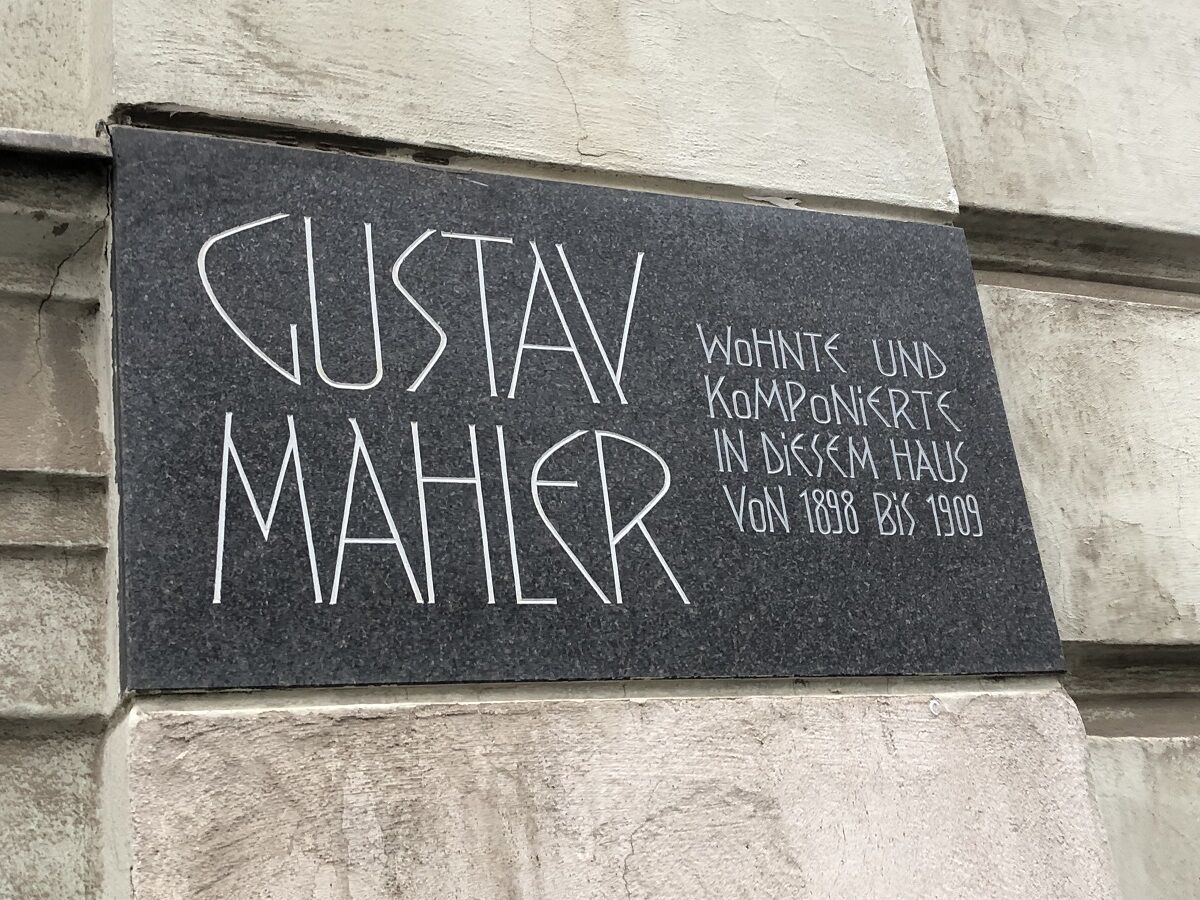 GUSTAV
MAHLER
WOHNTE UND
KOMPONiERTE
IN DiESEM HAUS
VON 1898 BiS 1909